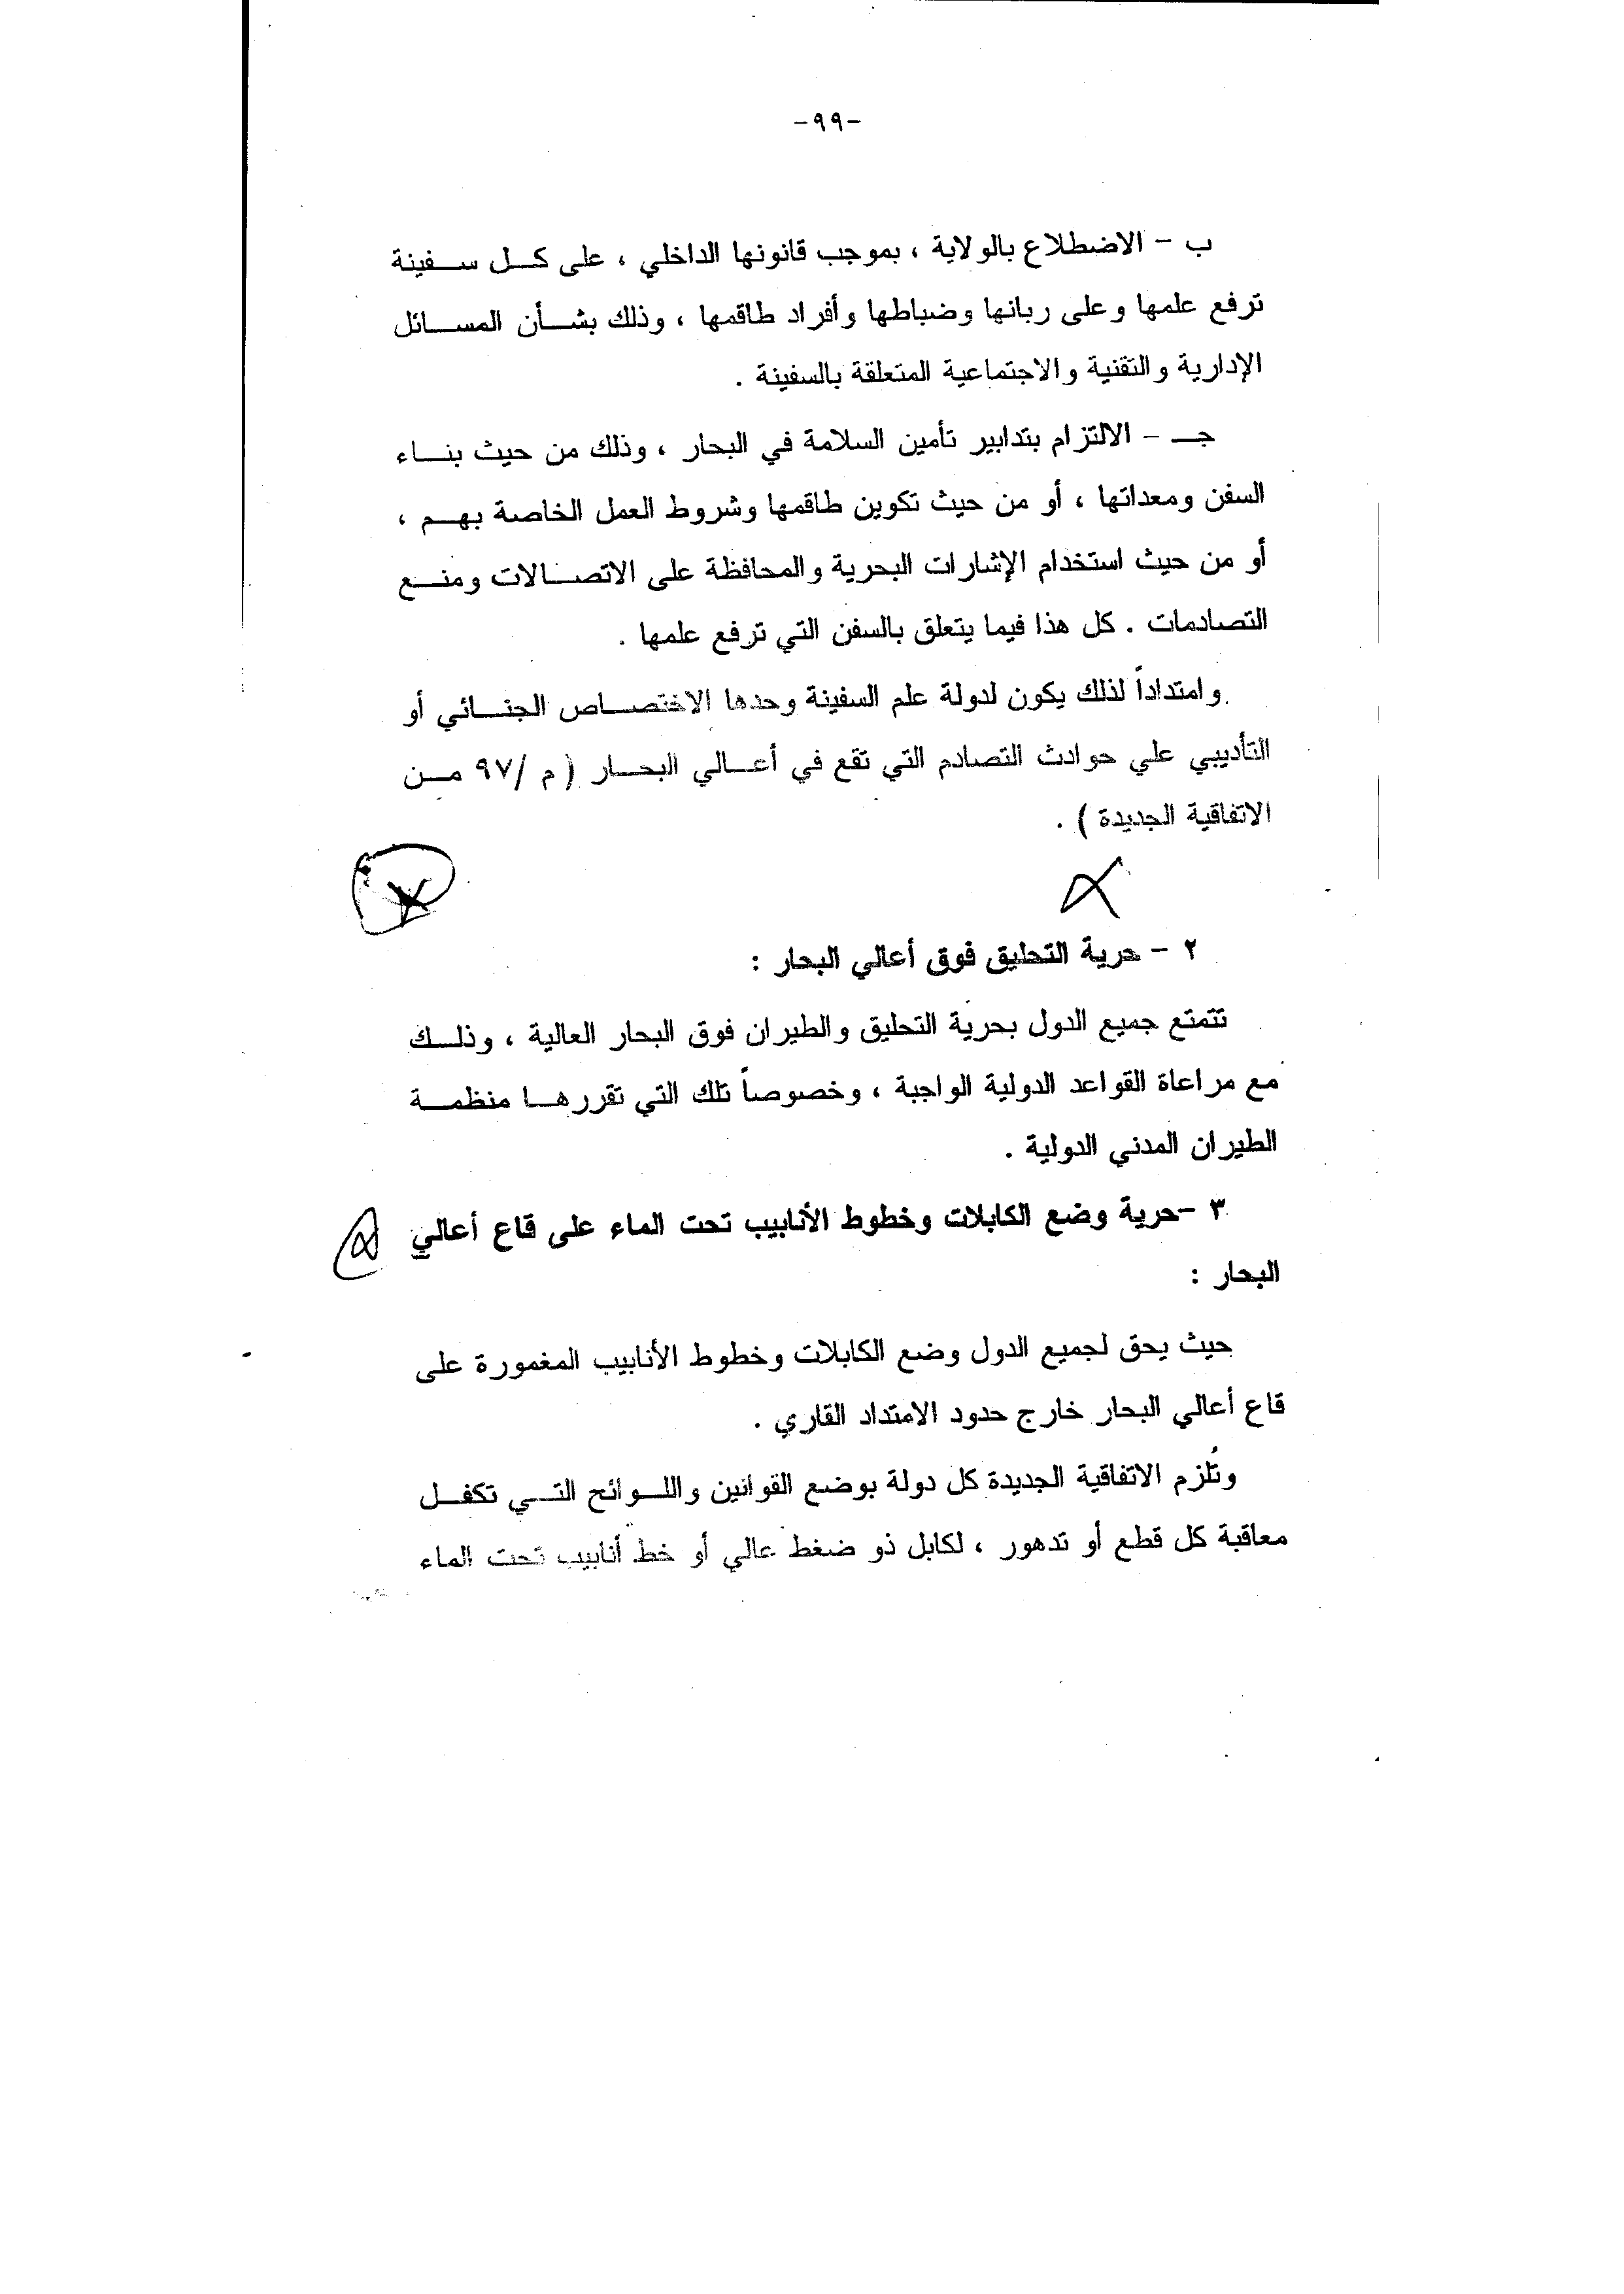 -٩٩-
ب - الاضطلاع بالولاية ، بموجب قانونها الداخلي ، على كل سفينة
ترفع علمها وعلى ربانها وضباطها وأفراد طاقمها ، وذلك بشأن المسائل
الإدارية والتقنية والاجتماعية المتعلقة بالسفينة .
جـ - الالتزام بتدابير تأمين السلامة في البحار ، وذلك من حيث بناء
السفن ومعداتها ، أو من حيث تكوين طاقمها وشروط العمل الخاصة بهم ،
أو من حيث استخدام الإشارات البحرية والمحافظة على الاتصالات ومنع
التصادمات . كل هذا فيما يتعلق بالسفن التي ترفع علمها .
وامتداداً لذلك يكون لدولة علم السفينة وحدها الاختصاص الجنائي أو
التأديبي علي حوادث التصادم التي تقع في أعالي البحار ( م /٩٧ من
الاتفاقية الجديدة ) .
٢ - حرية التحليق فوق أعالي البحار :
تتمتع جميع الدول بحرية التحليق والطيران فوق البحار العالية ، وذلك
مع مراعاة القواعد الدولية الواجبة ، وخصوصاً تلك التي تقررها منظمة
الطيران المدني الدولية .
٣ -حرية وضع الكابلات وخطوط الأنابيب تحت الماء على قاع أعالي
البحار :
حيث يحق لجميع الدول وضع الكابلات وخطوط الأنابيب المغمورة على
قاع أعالي البحار خارج حدود الامتداد القاري .
وتُلزم الاتفاقية الجديدة كل دولة بوضع القوانين واللوائح التي تكفل
معاقبة كل قطع أو تدهور ، لكابل ذو ضغط عالي أو خط أنابيب تحت الماء